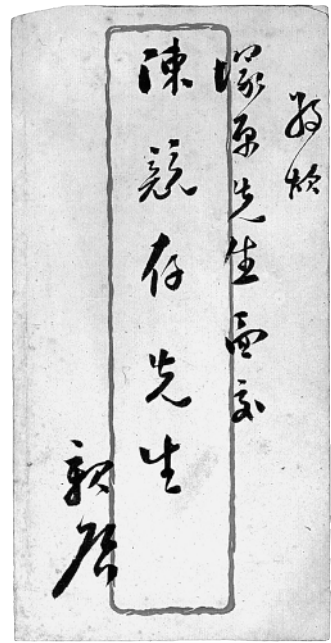 敬煩
塚原先生面交
陳競存先生
親啓